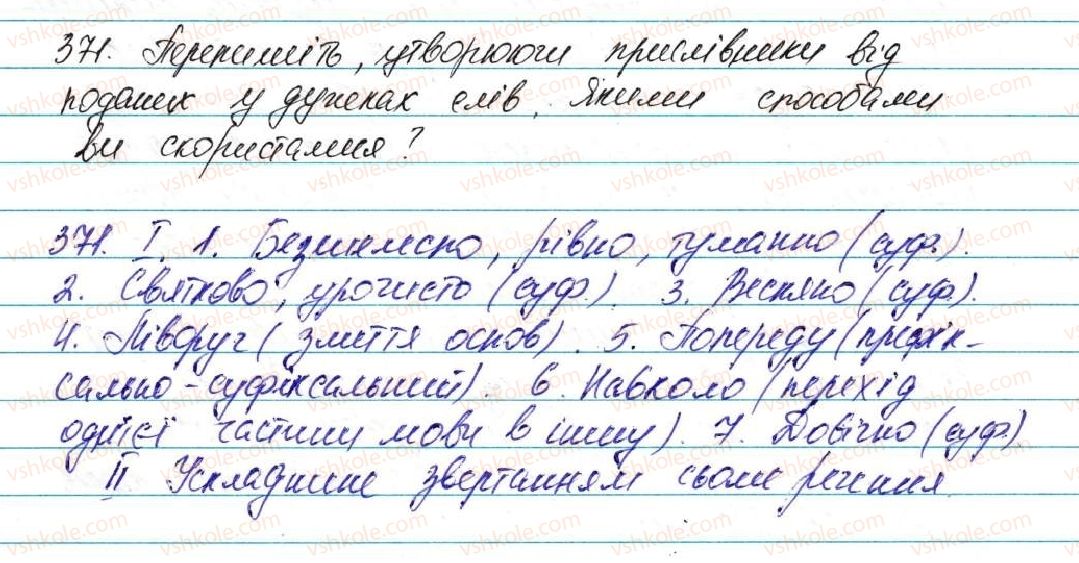 371. Перепишіть, утворюючи прислівники від
поданих у дужках слів. Якими способами
ви скористалися?
371. I. 1. Безшелесно, рівно, туманно (суф.).
2. Святково, урочисто (суф.). 3. Весняно (суф.).
4. Ліворуч (злиття основ). 5. Попереду (префік-
сально-суфіксальний). 6. Навколо (перехід
однієї частини мови в іншу). 7. Довічно (суф.).
II Ускладнине звертанням сьоме речення